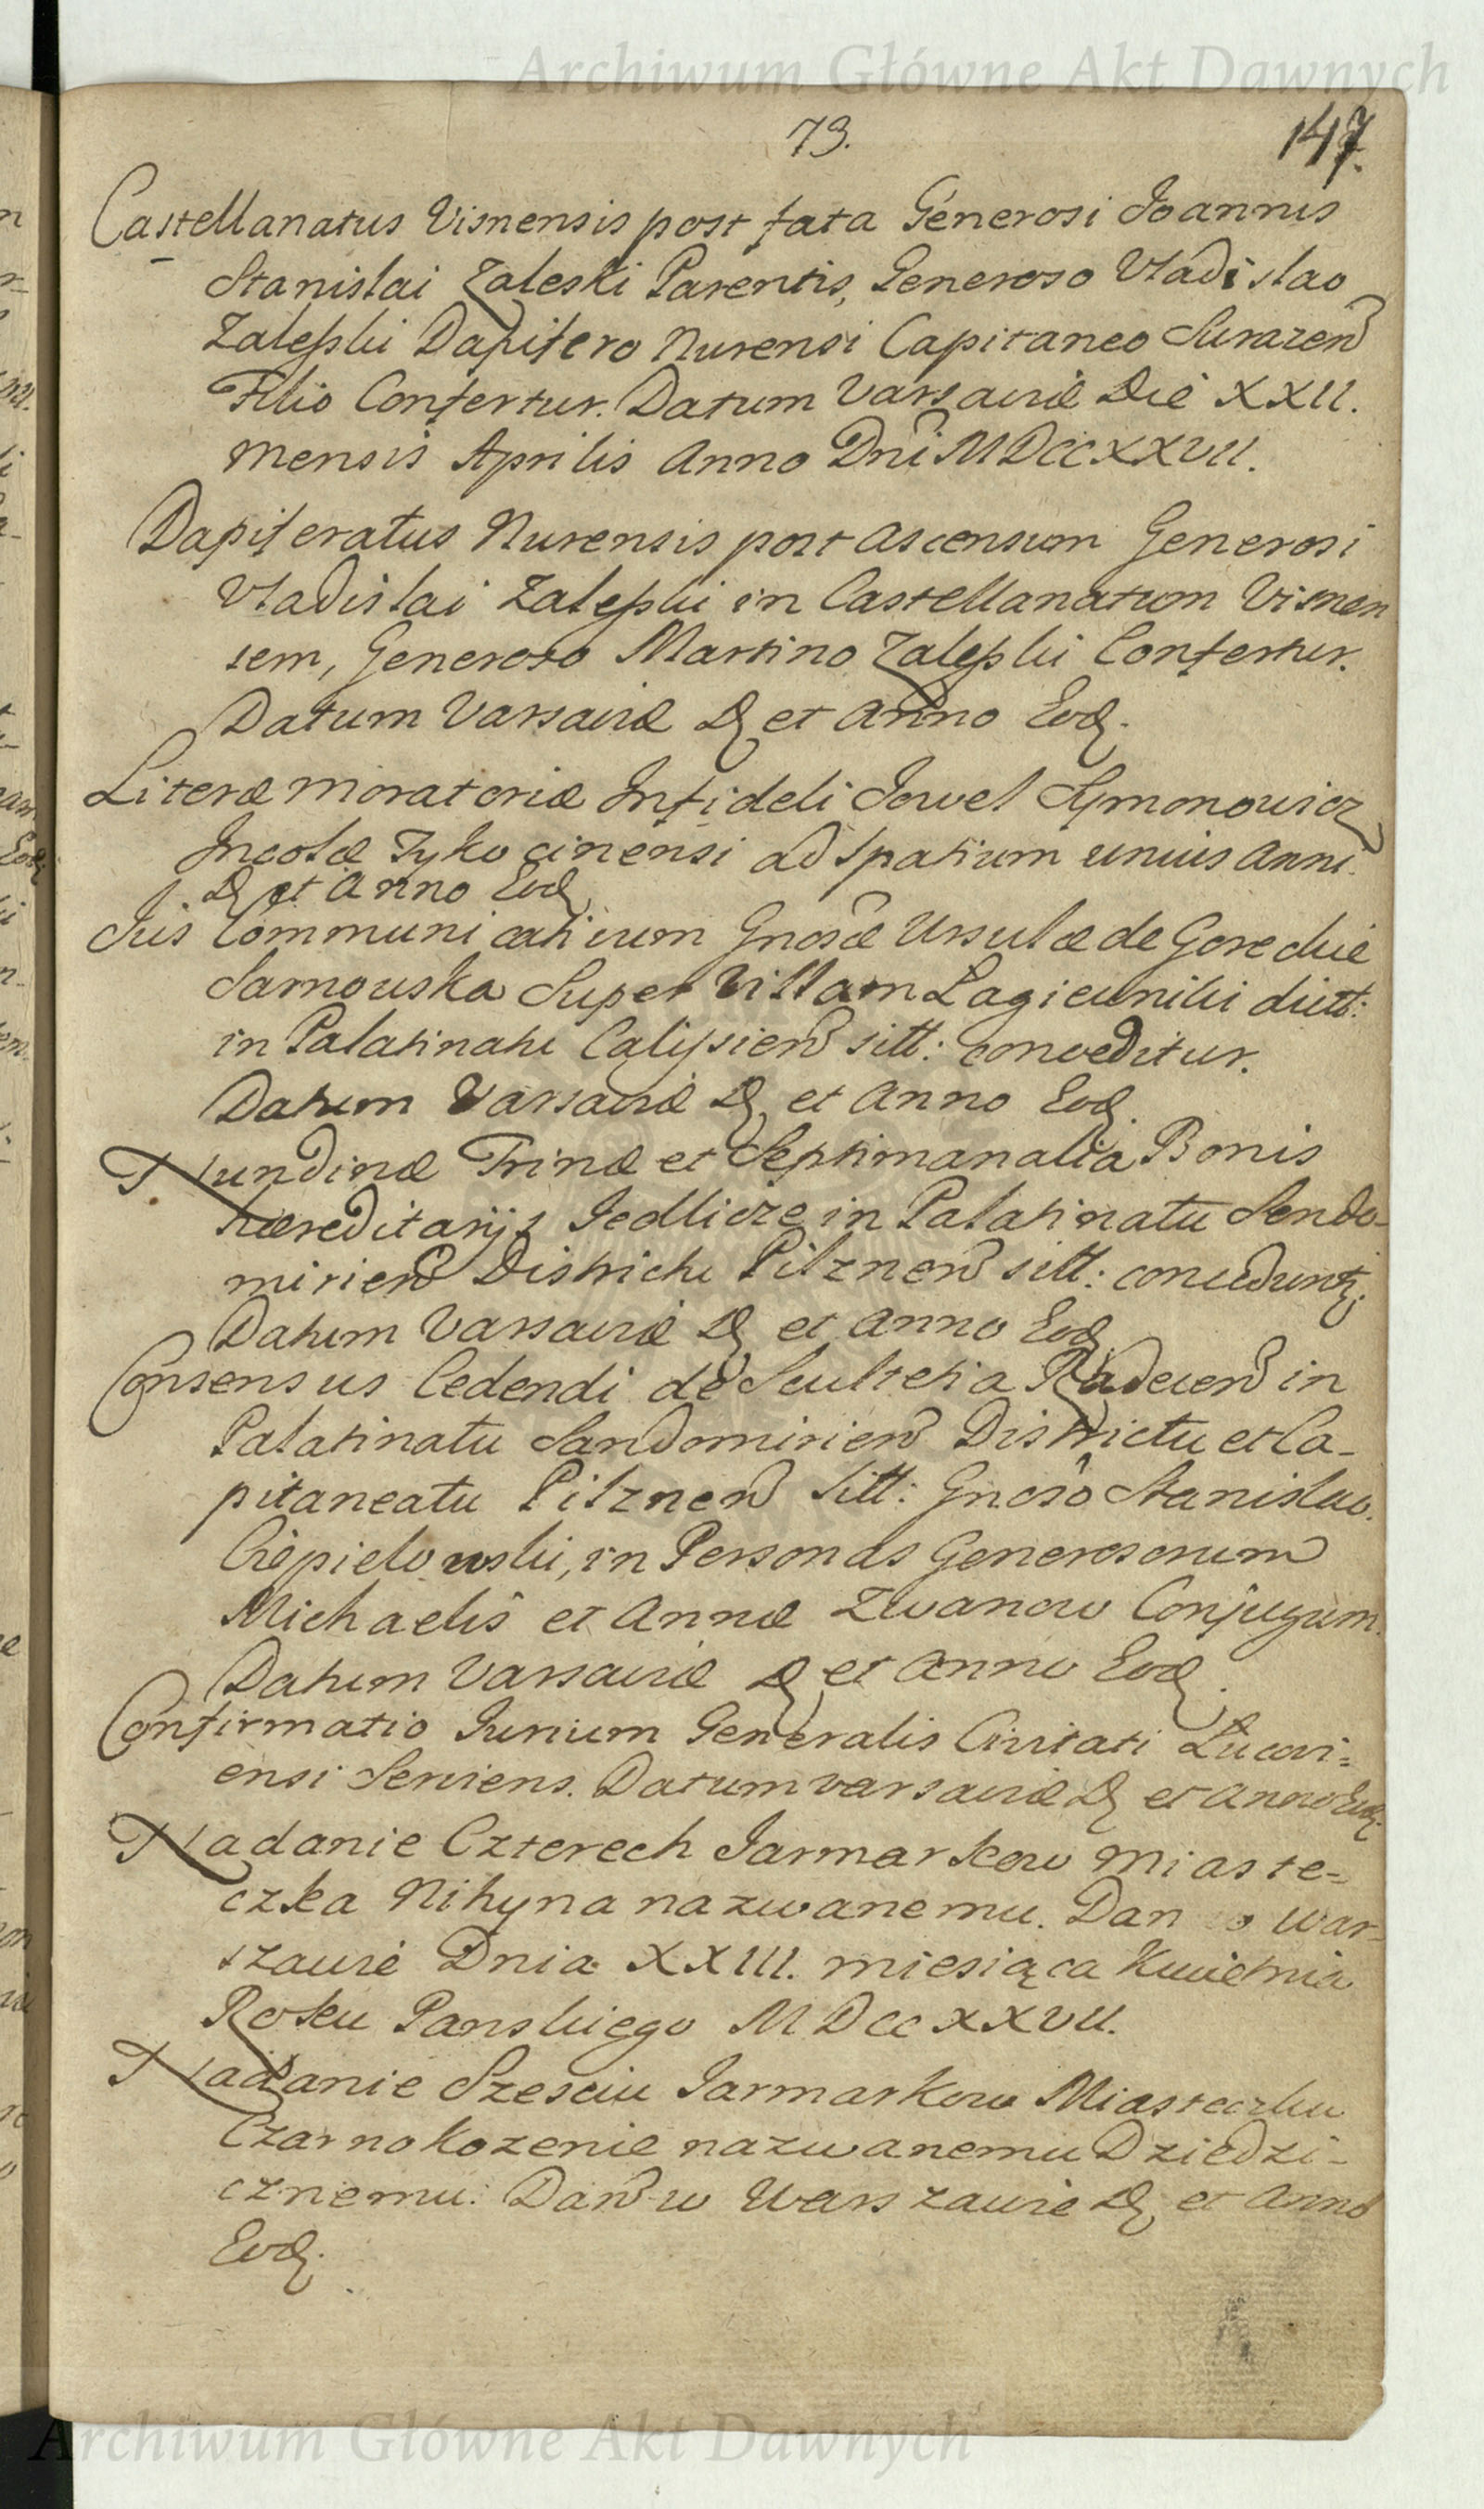 Archiwum Główne Akt Dawnych
73.
147.
Castellanatus Visnensis post fata Generosi Joannis
Stanislai Zaleski Parentis, Generoso Vladislao
Zaleski Dapifero Nurensi Capitaneo Surazen
Filio Confertur. Datum Varsaviæ Die XXII.
mensis Aprilis Anno Dni MDCCXXVII.
Dapiferatus Nurensis post ascensum Generosi
Vladislai Zaleski in Castellanatum Visnen
sem, Generoso Martino Zaleski Confertur.
Datum Varsaviæ D. et Anno Eod.
Literæ moratoriæ Infideli Jowel Symonowicz
Incolæ Tykocinensi ad spatium unius Anni.
D. et Anno Eod
Jus Communicativum Gnosæ Ursulæ de Goreckie
Sarnowska Super Villam Lagiewniki dict:
in Palatinatu Calisien sitt: conceditur.
Datum Varsaviæ D. et Anno Eod.
Nundinæ Trinæ et Septimanalia Bonis
hæreditarijs Jedlicze in Palatinatu Sendo-
mirien Districtu Pilznen sitt: conceduntr.
Datum Varsaviæ D. et Anno Eod
Consensus Cedendi de Scultetia Radecen in
Palatinatu Sandomirien Districtu et Ca-
pitaneatu Pilznen Sitt: Gnoso Stanislao.
Ciepielowski, in Personas Generosorum
Michaelis et Annæ Zwanow Conjugum.
Datum Varsaviæ D. et Anno Eod.
Confirmatio Jurium Generalis Civitati Lucovi=
ensi Serviens. Datum varsaviæ D. et Anno Eod.
Nadanie Czterech Jarmarkow Miaste=
czka Nihyna nazwanemu. Dan w War-
szawie Dnia XXIII. miesiąca Kwietnia
Roku Panskiego MDCCXXVII.
Nadanie Szesciu Jarmarkow Miasteczku
Czarnokozenie nazwanemu Dziedzi-
cznemu. Dan w Warszawie D. et Anno
Eod.
Archiwum Główne Akt Dawnych